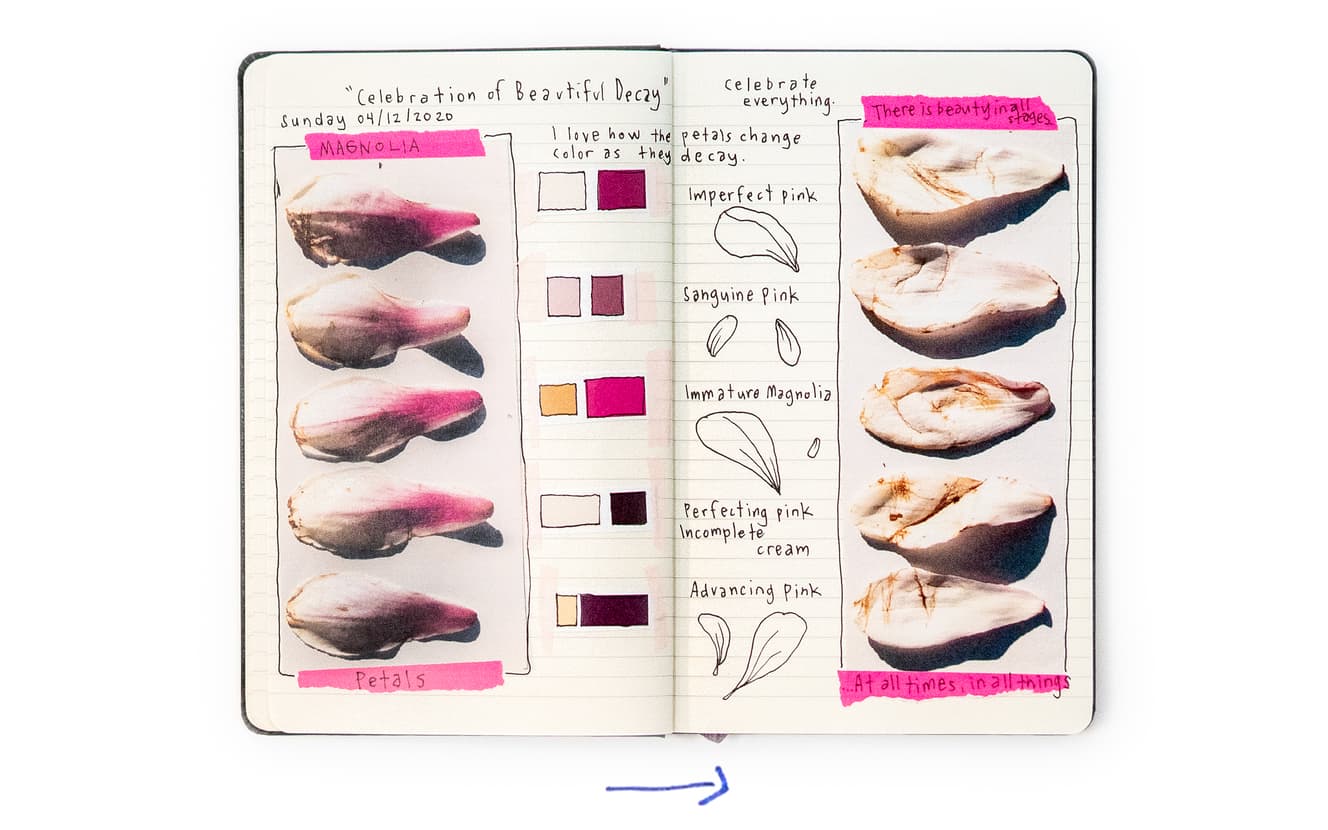 "Celebration of Beautiful Decay"
Sunday 04/12/2020
MAGNOLIA
I love how the petals change
color as they decay.
Petals
Celebrate
everything.
Imperfect pink
Sanguine pink
Immature Magnolia
Perfecting pink
Incomplete
cream
Advancing pink
There is beauty in all
stages
...At all times, in all things